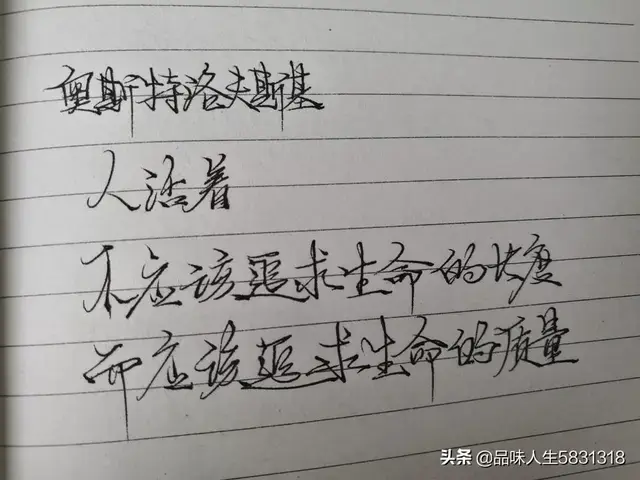 奥斯特洛夫斯基
人活着
不应该追求生命的长度
而应该追求生命的质量
头条 @品味人生5831318